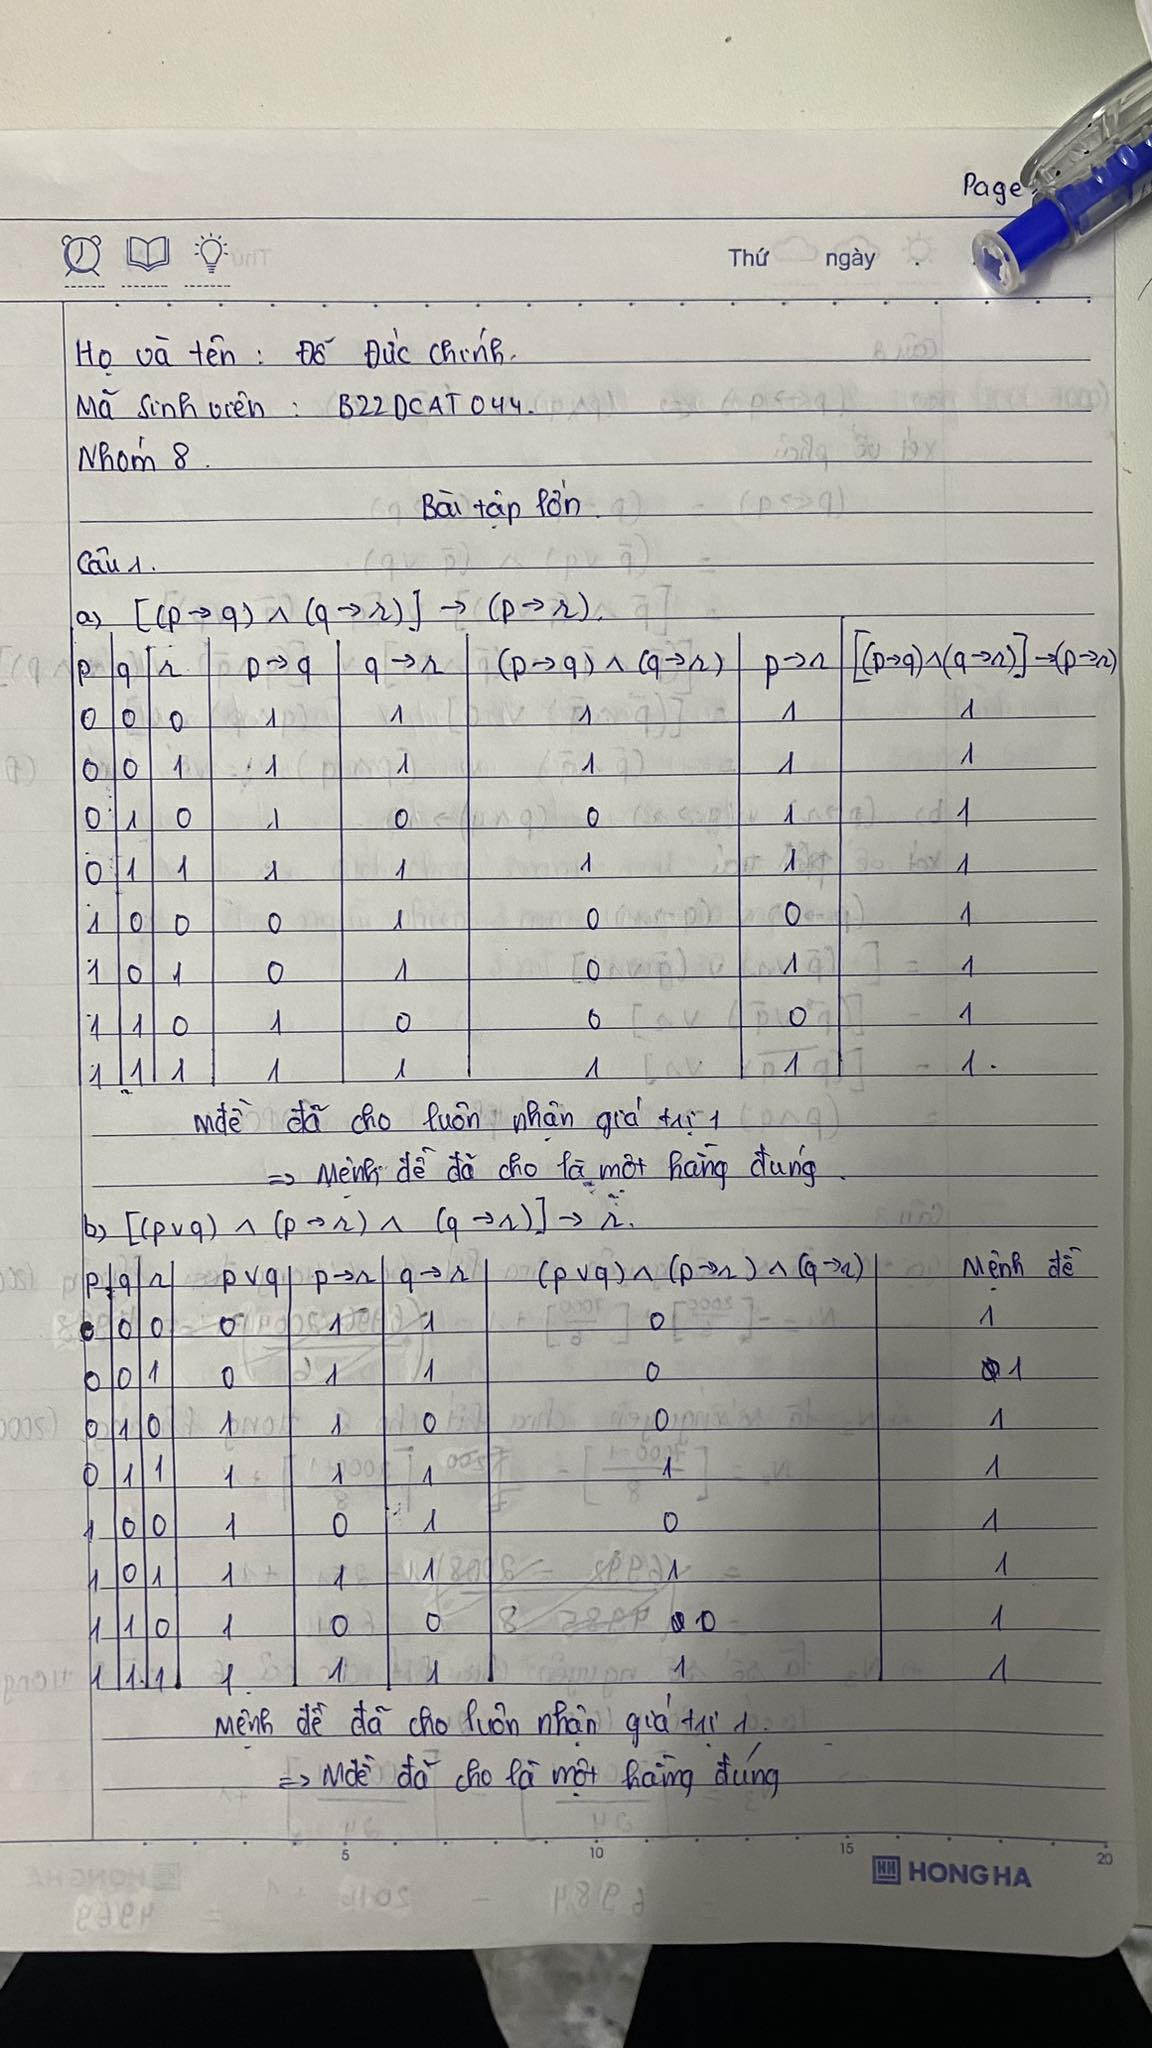 Page
Thứ ngày
Họ và tên : Đỗ Đức Chính.
Mã Sinh viên : B22DCAT044.
Nhóm 8.
Bài tập lớn.
Câu 1.
a) [(p → q) ∧ (q → r)] → (p → r).
p q r p → q q → r (p → q) ∧ (q → r) p → r [(p → q) ∧ (q → r)] → (p → r)
0 0 0 1 1 1 1 1
0 0 1 1 1 1 1 1
0 1 0 1 0 0 1 1
0 1 1 1 1 1 1 1
1 0 0 0 1 0 0 1
1 0 1 0 1 0 1 1
1 1 0 1 0 0 0 1
1 1 1 1 1 1 1 1.
Mđề đã cho luôn nhận giá trị 1
=> Mệnh đề đã cho là một hằng đúng.
b) [(p ∨ q) ∧ (p → r) ∧ (q → r)] → r.
p q r p ∨ q p → r q → r (p ∨ q) ∧ (p → r) ∧ (q → r) Mệnh đề
0 0 0 0 1 1 0 1
0 0 1 0 1 1 0 1
0 1 0 1 1 0 0 1
0 1 1 1 1 1 1 1
1 0 0 1 0 1 0 1
1 0 1 1 1 1 1 1
1 1 0 1 0 0 0 1
1 1 1 1 1 1 1 1
Mệnh đề đã cho luôn nhận giá trị 1.
=> Mđề đã cho là một hằng đúng
5 10 15 20
HONG HA